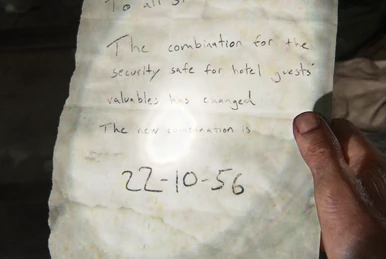 To all
The combination for the
security safe for hotel guests'
valuables has changed
The new combination is
22-10-56